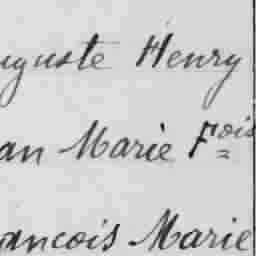 uguste Henry
an Marie Fois
ancois Marie